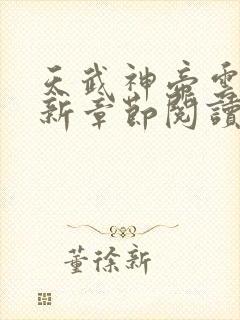 天武神帝雲
新章節閱讀
董徐新